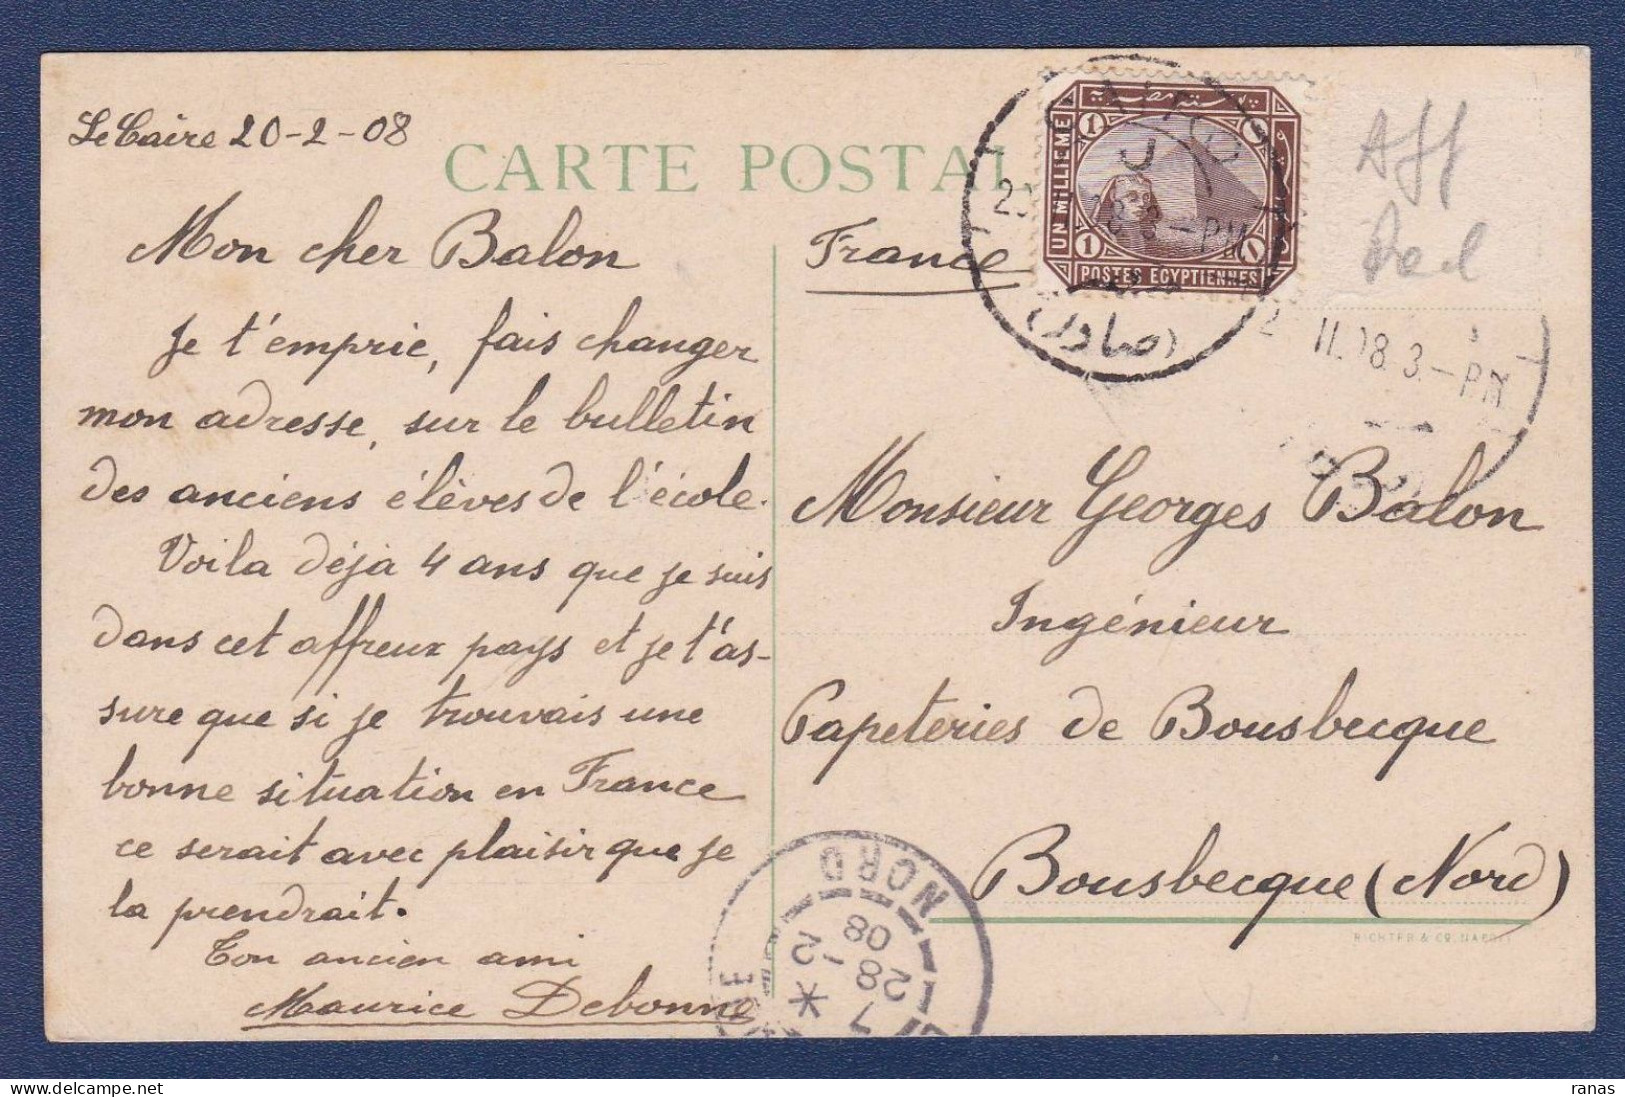 Le Caire 20-2-08
CARTE POSTAL
Mon cher Balon
Je t'emprie, fais changer
mon adresse, sur le bulletin
des anciens élèves de l'école.
Voila déjà 4 ans que je suis
dans cet affreux pays et je t'as-
sure que si je trouvais une
bonne situation en France
ce serait avec plaisir que je
la prendrait.
Ton ancien ami
Maurice Debonne
France
UN MILLIEME
1
1
1
POSTES EGYPTIENNES
CAIRO
8-3-PM
صادر
II.08.3.-PM
Aff
Red
Monsieur Georges Balon
Ingénieur
Papeteries de Bousbecque
Bousbecque (Nord)
RICHTER & CO. NAPOLI
NORD
28
2
08
ranas